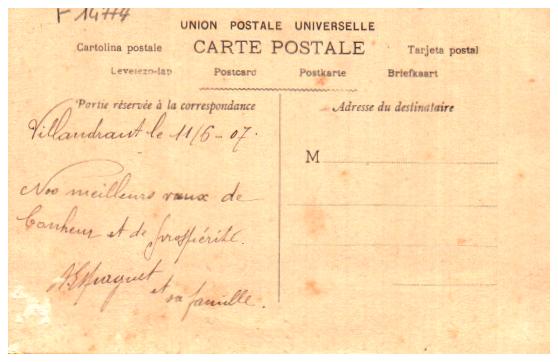 F 14774
UNION POSTALE UNIVERSELLE
Cartolina postale CARTE POSTALE Tarjeta postal
Levelezo-lap Postcard Postkarte Briefkaart
Partie réservée à la correspondance
Adresse du destinataire
Villandraut le 11/6-07.
M
Nos meilleurs vœux de
bonheur et de prospérité.
Espaguet
et sa famille.